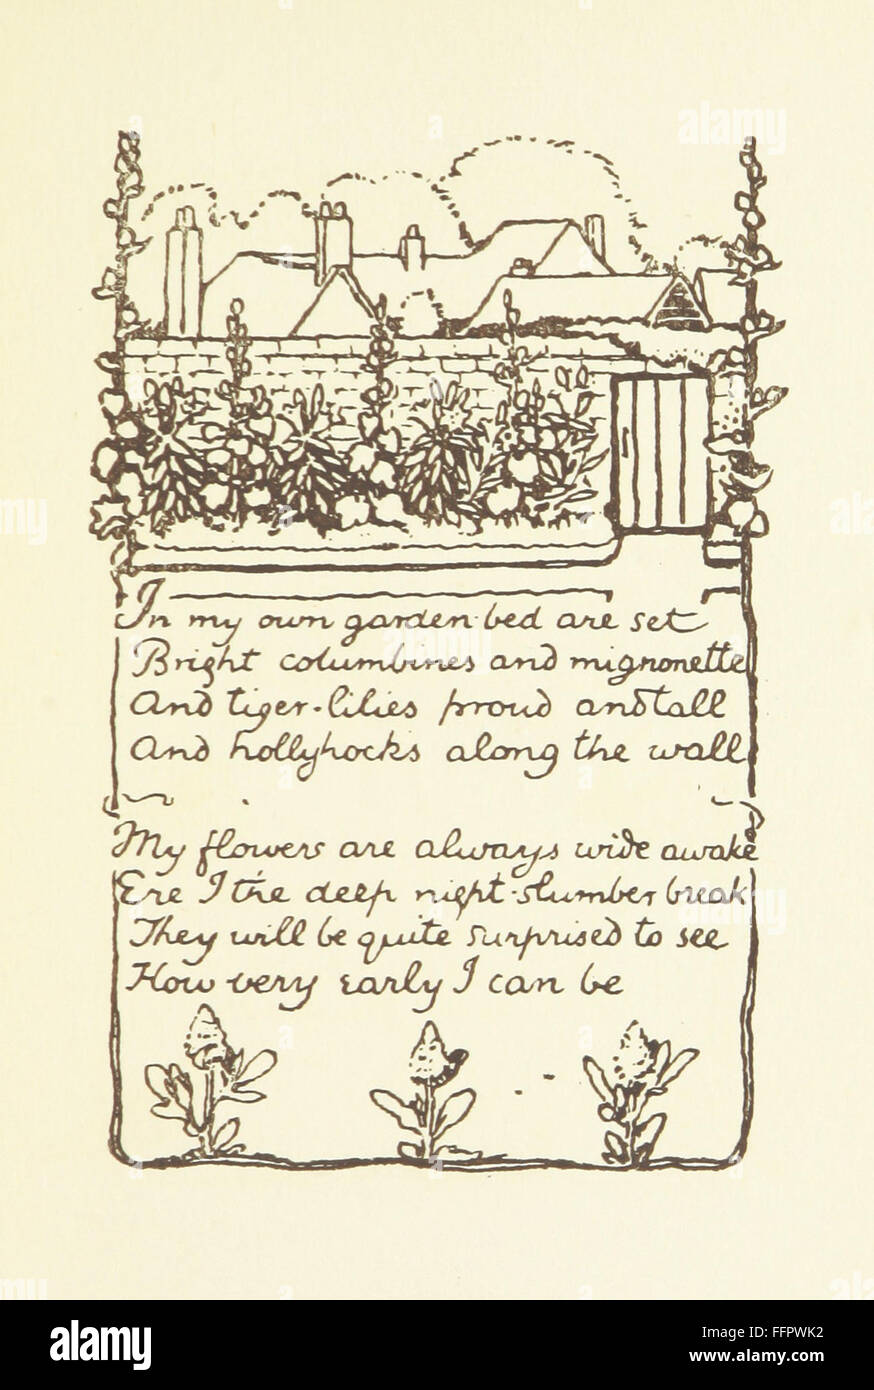 In my own garden-bed are set
Bright columbines and mignonette
And tiger-lilies proud and tall
And hollyhocks along the wall
My flowers are always wide awake
Ere I the deep night-slumber break
They will be quite surprised to see
How very early I can be
alamy
Image ID: FFPWK2
www.alamy.com